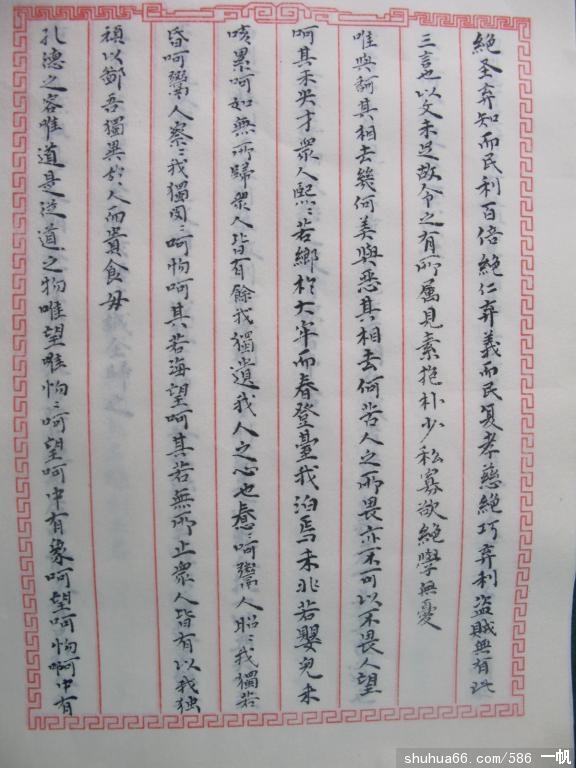 絕圣弃知而民利百倍絕仁弃義而民复孝慈絕巧弃利盜賊無有此
三言也以文未足故令之有所属見素抱朴少私寡欲絕學無憂
唯與訶其相去幾何美與惡其相去何若人之所畏亦不可以不畏人望
呵其未央才眾人熙〻若鄉於大牢而春登臺我泊焉未兆若嬰兒未
咳累呵如無所歸眾人皆有餘我獨遺我人之心也惷〻呵鬻人昭〻我獨若
昏呵鬻人察〻我獨閔〻呵忽呵其若海望呵其若無所止眾人皆有以我独
頑以鄙吾獨異於人而貴食母
孔德之容唯道是從道之物唯望唯忽〻呵望呵中有象呵望呵忽呵中有
shuhua66.com/586 一帆